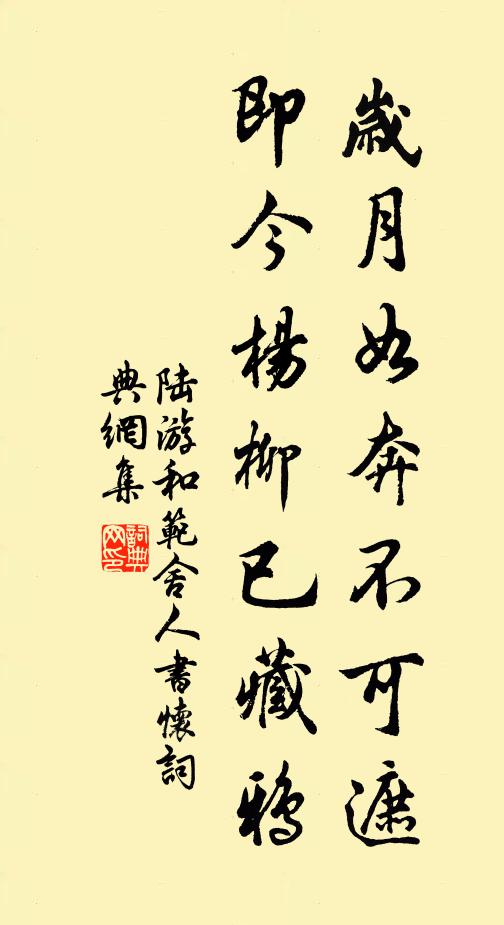 歲月如奔不可遮
即今楊柳已藏鴉
陆游和範舍人書懷詞
典網集
詞典網印